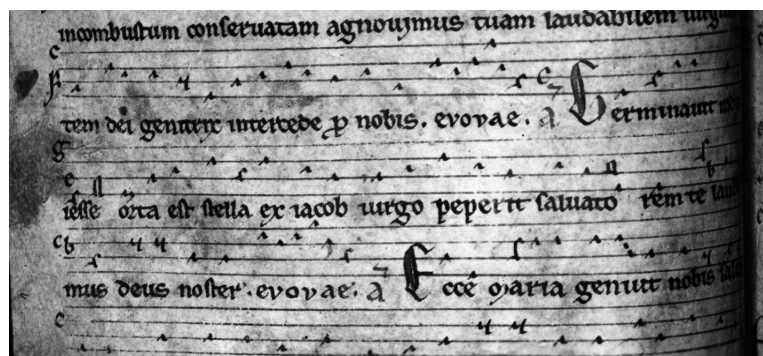 incombustum conseruatam agnouimus tuam laudabilem
tem dei genitrix intercede ꝑ nobis. evovae. a Germinauit
iesse orta est stella ex iacob uirgo peperit saluatorem te
mus deus noster. evovae. a Ecce maria genuit nobis